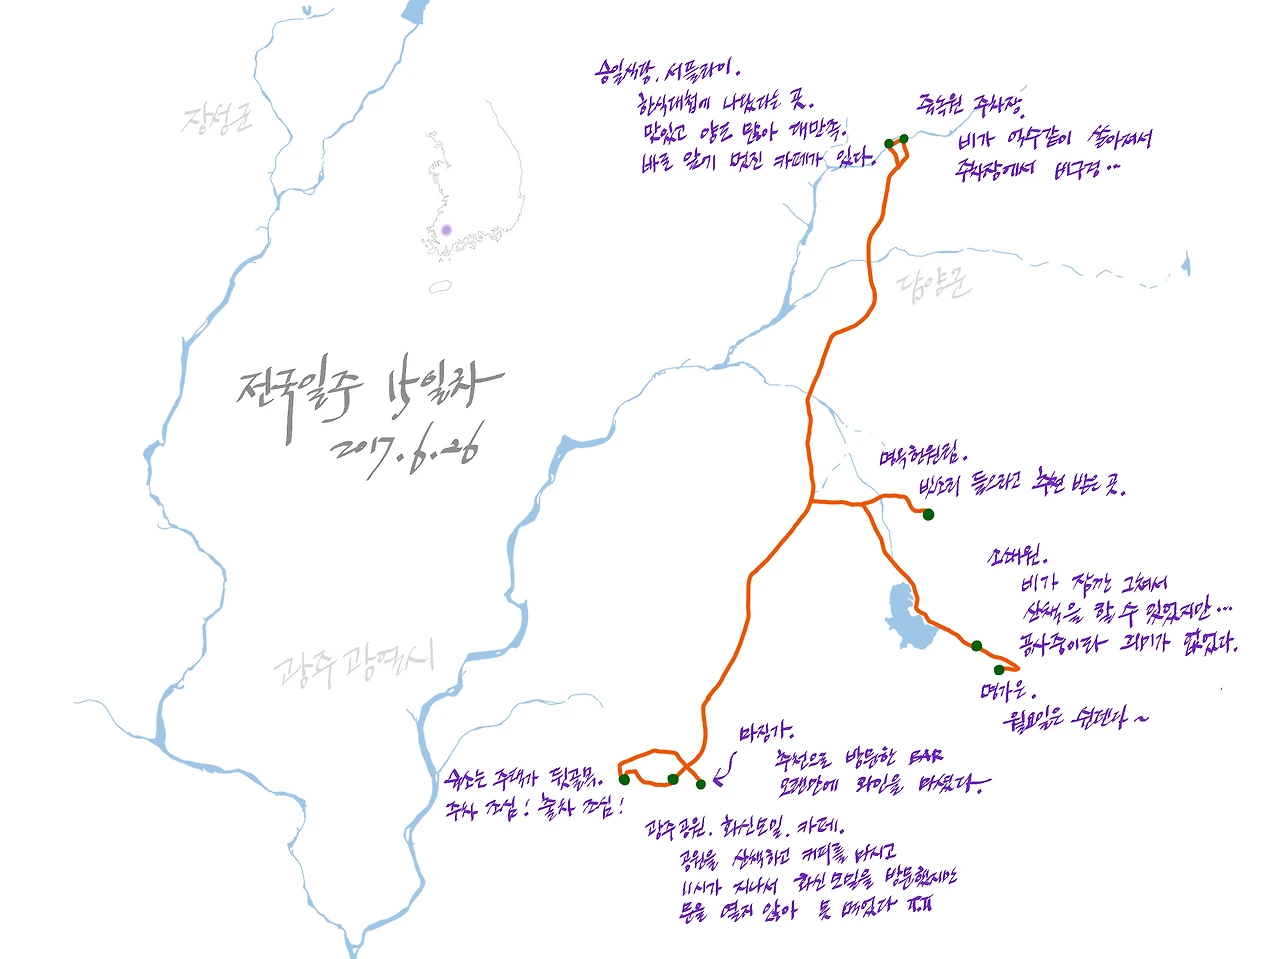 장성군
승일식당. 서플라이.
한식대첩에 나왔다는 곳.
맛있고 양도 많아 대만족.
바로 앞에 멋진 카페가 있다.
죽녹원 주차장.
비가 억수같이 쏟아져서
주차장에서 비구경...
담양군
전국일주 15일차
2017.6.26
명옥헌원림.
빗소리 들으라고 추천 받은 곳.
소쇄원.
비가 잠깐 그쳐서
산책을 할 수 있었지만...
공사중이라 재미가 없었다.
명가은.
월요일은 쉰덴다~
광주광역시
마집가.
추천으로 방문한 BAR
오랜만에 와인을 마셨다.
숙소는 주택가 뒷골목.
주차 조심! 출차 조심!
광주공원. 화신모밀. 카페.
공원을 산책하고 커피를 마시고
11시가 지나서 화신모밀을 방문했지만
문을 열지 않아 못 먹었다 ㅠ.ㅠ